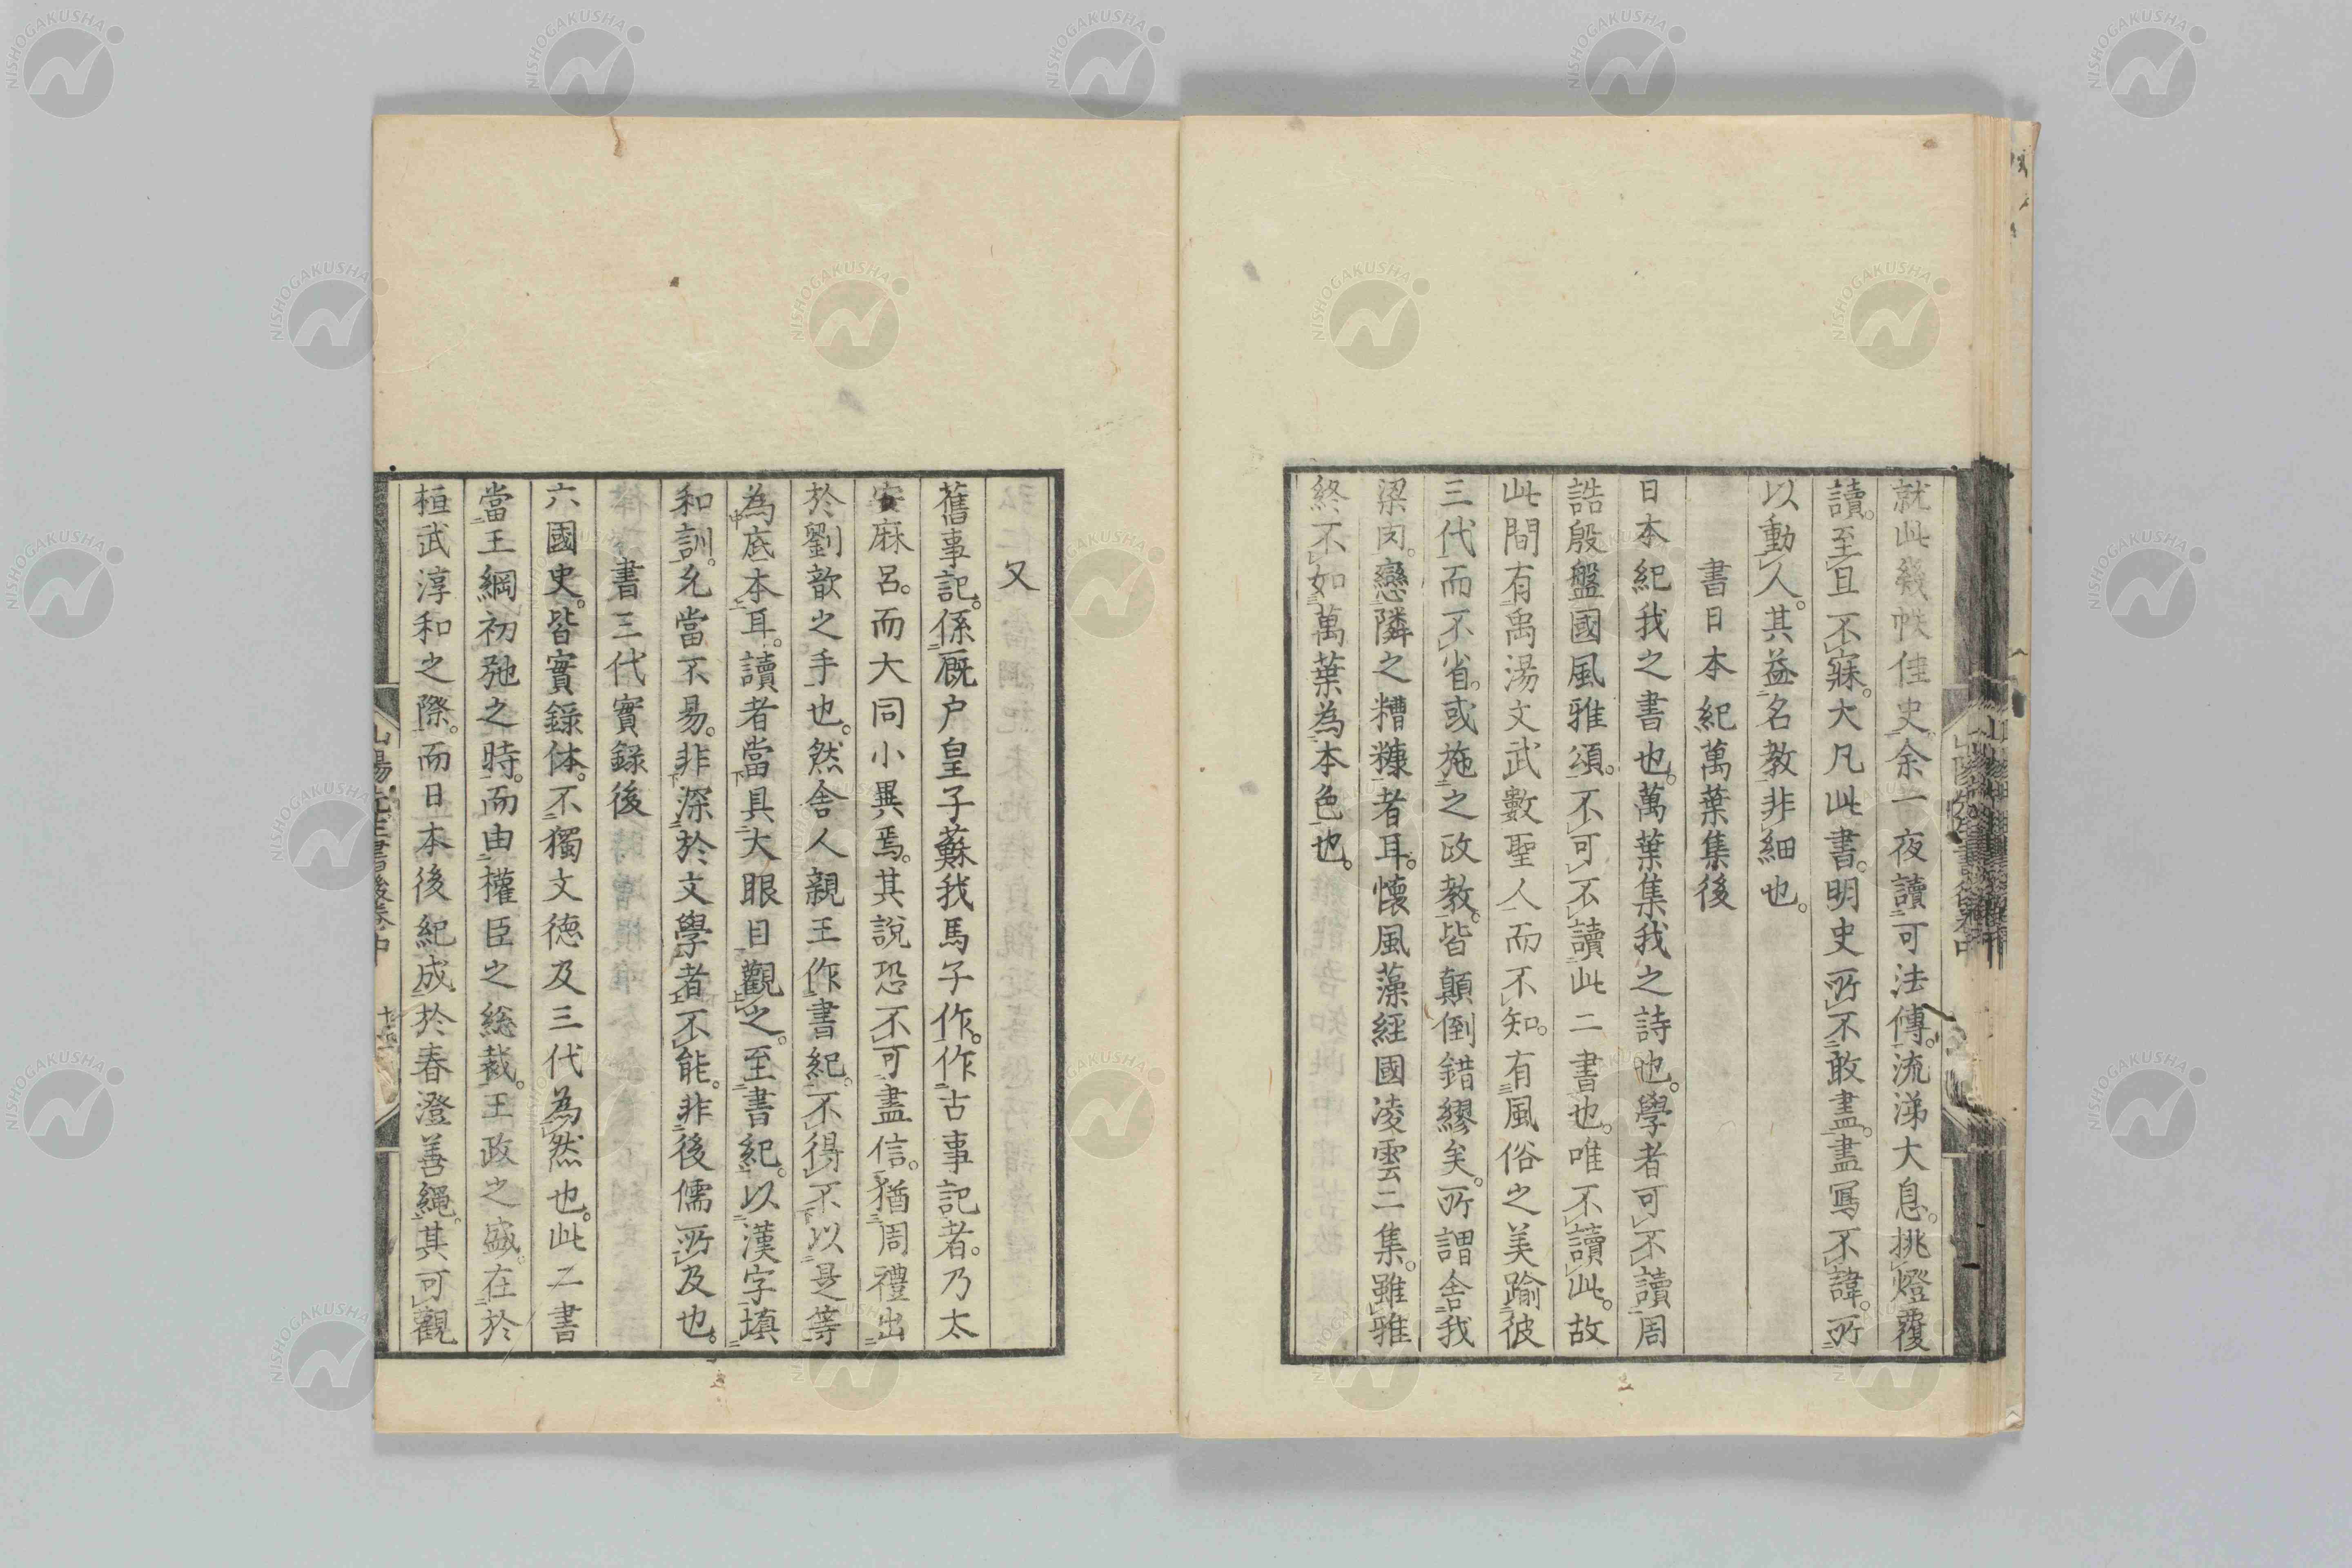 就此幾帙佳史余一夜讀可法傳。流涕大息。挑燈覆
讀。至且不寐。大凡此書。明史所不敢盡。盡寫不諱。所
以動人。其益名教非細也。
書日本紀萬葉集後
日本紀我之書也。萬葉集我之詩也。學者可不讀周
誥殷盤國風雅頌。不可不讀此二書也。唯不讀此。故
此間有禹湯文武數聖人而不知。有風俗之美踰彼
三代而不省。或施之政教。皆顛倒錯繆矣。所謂舍我
梁肉。戀隣之糟糠者耳。懷風藻經國凌雲二集。雖雅
終不如萬葉為本色也。
又
舊事記。係厩户皇子蘇我馬子作。作古事記者。乃太
安麻呂。而大同小異焉。其說恐不可盡信。猶周禮出
於劉歆之手也。然舍人親王作書紀。不得不以是等
為底本耳。讀者當具大眼目觀之。至書紀。以漢字填
和訓。允當不易。非深於文學者不能。非後儒所及也。
書三代實錄後
六國史。皆實錄体。不獨文德及三代為然也。此二書
當王綱初弛之時。而由權臣之総裁。王政之盛。在於
桓武淳和之際。而日本後紀成於春澄善繩。其可觀
山陽先生書後卷中
NISHOGAKUSHA